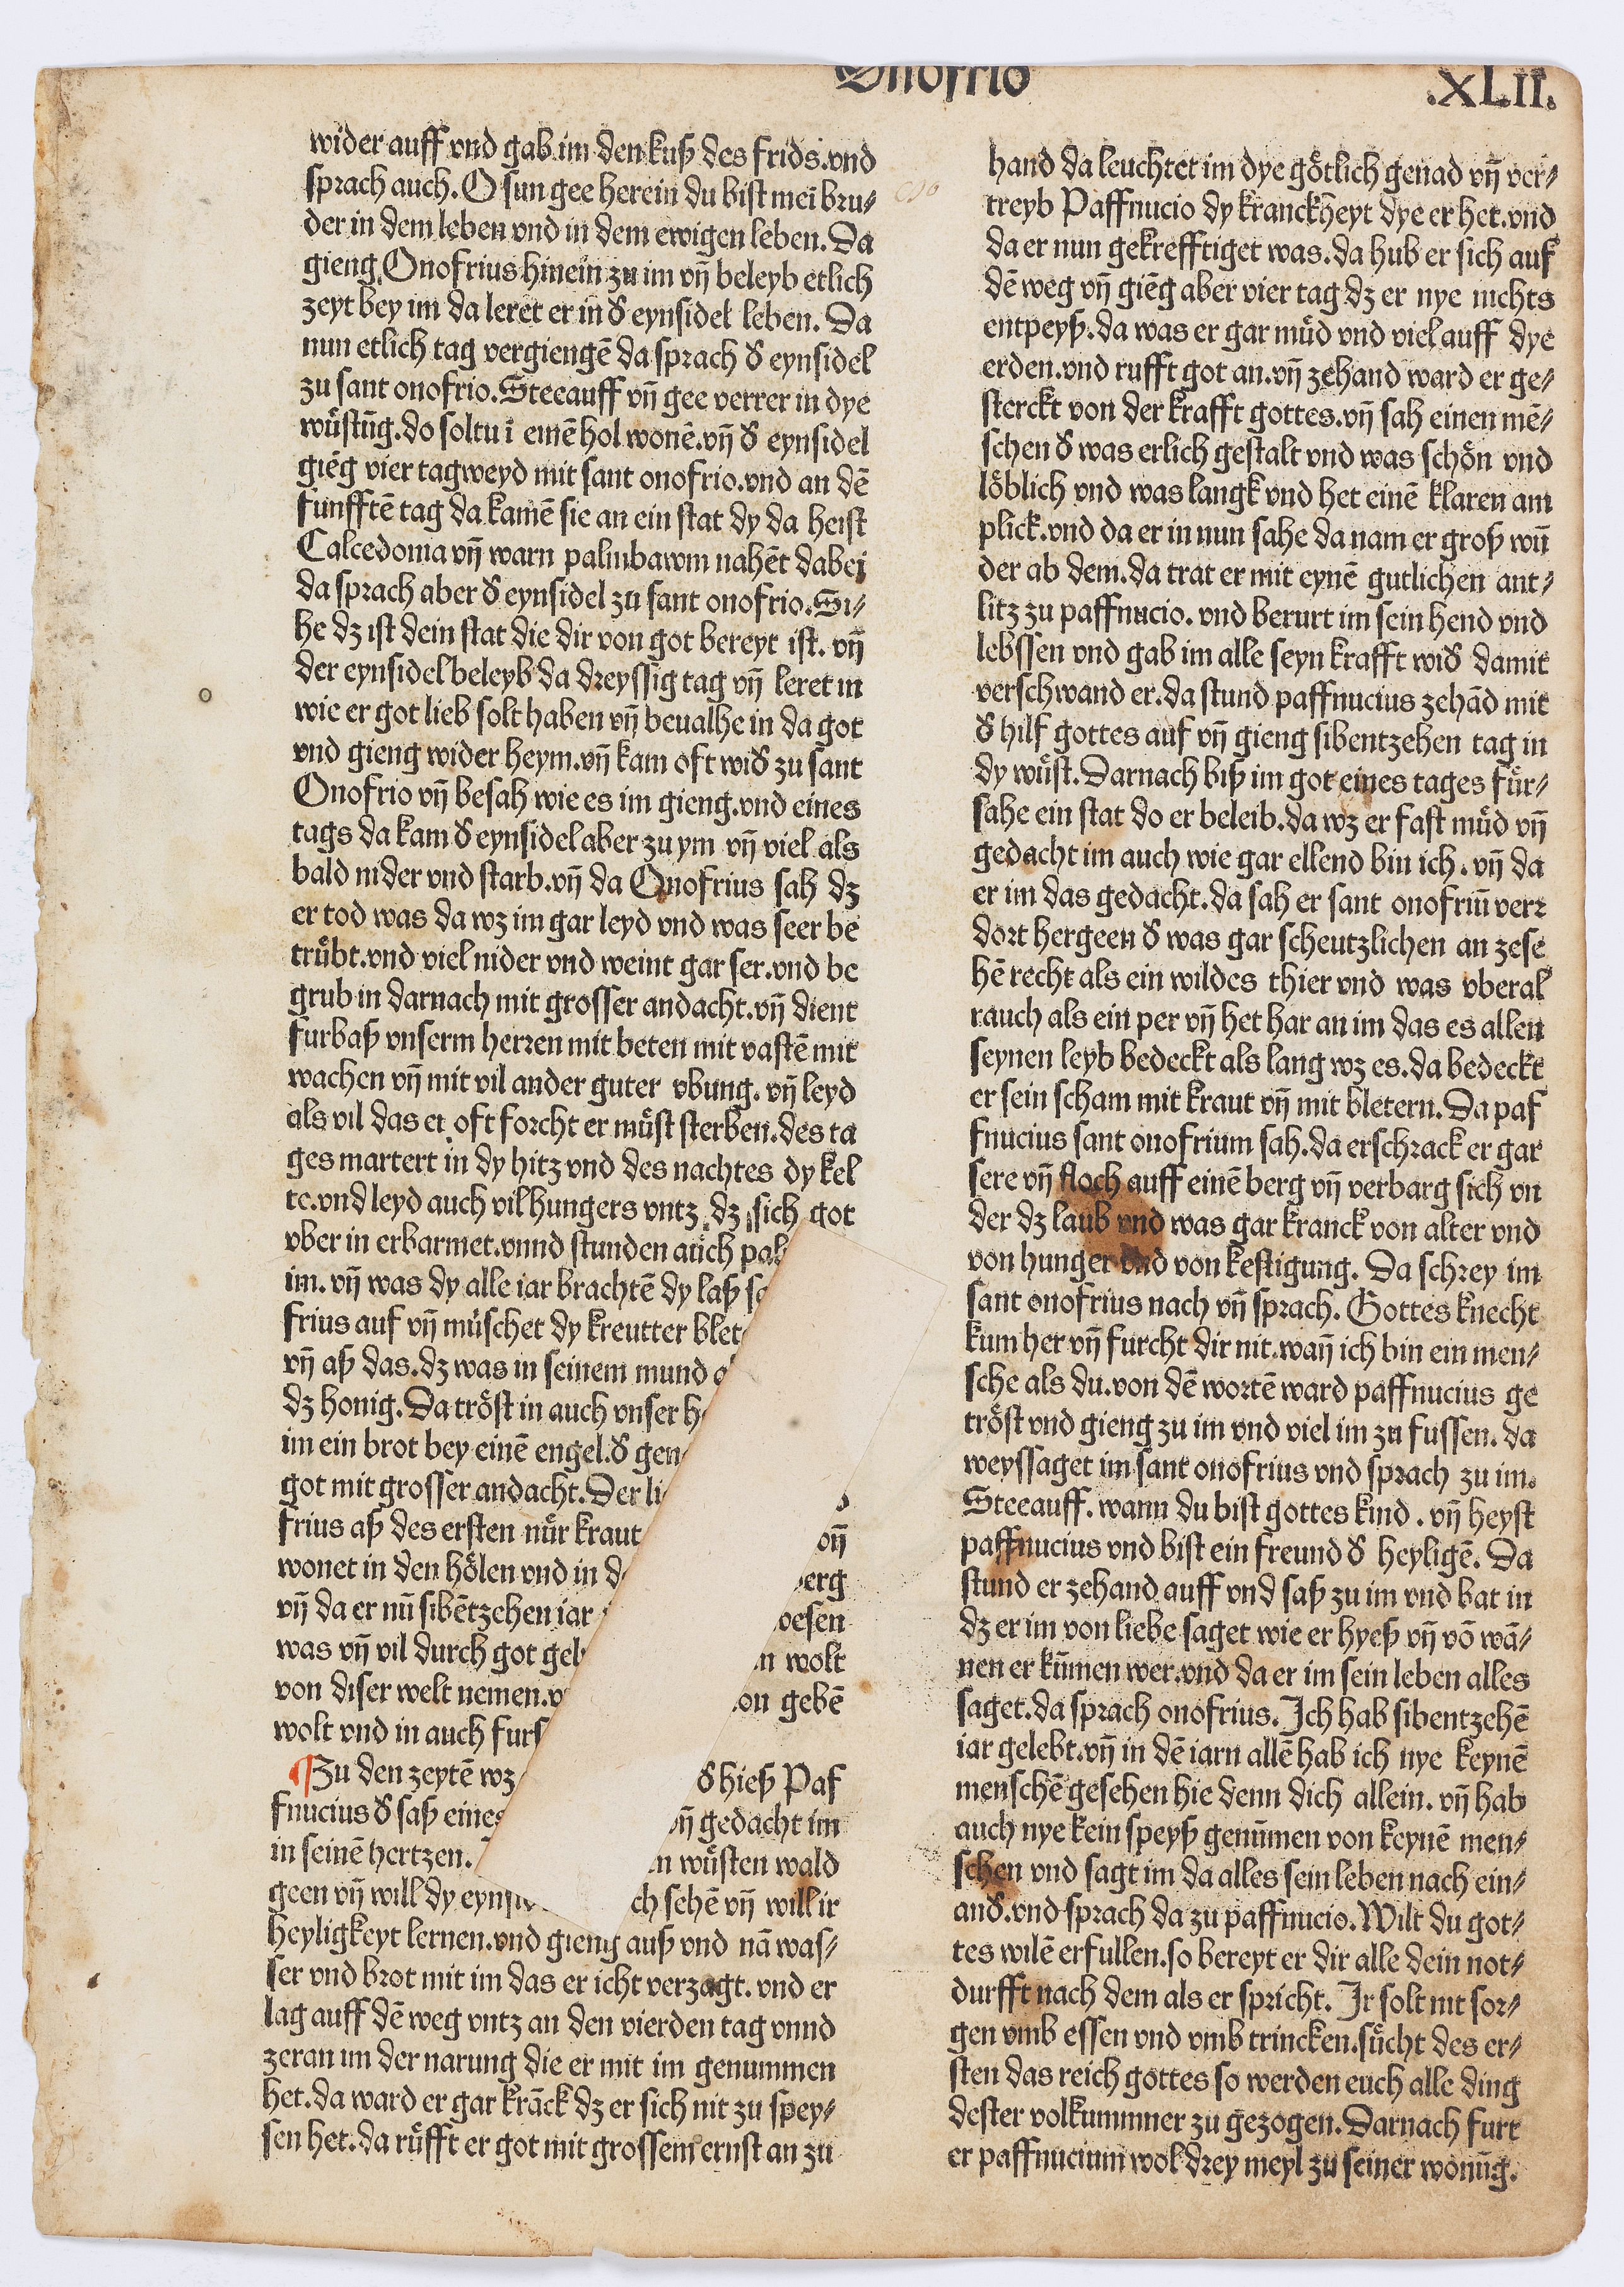 Onofrio
.XLII.
wider auff vnd gab im den kuß des frids.vnd
sprach auch. O sun gee herein du bist mei bru-
der in dem leben vnd in dem ewigen leben. Da
gieng Onofrius hinein zu im vñ beleyb etlich
zeyt bey im da leret er in ð eynsidel leben. Da
nun etlich tag vergiengē da sprach ð eynsidel
zu sant onofrio. Steeauff vñ gee verrer in dye
wüstūg. do soltu ī einē hol wonē. vñ ð eynsidel
giēg vier tagweyd mit sant onofrio. vnd an dē
funfftē tag da kamē sie an ein stat dy da heist
Calcedonia vñ warn palmbawm nahēt dabei
da sprach aber ð eynsidel zu sant onofrio. Si-
he dz ist dein stat die dir von got bereyt ist. vñ
der eynsidel beleyb da dreyssig tag vñ leret in
wie er got lieb solt haben vñ beualhe in da got
vnd gieng wider heym. vñ kam oft wið zu sant
Onofrio vñ besah wie es im gieng. vnd eines
tags da kam ð eynsidel aber zu ym vñ viel als
bald nider vnd starb. vñ da Onofrius sah dz
er tod was da wz im gar leyd vnd was seer be
trübt. vnd viel nider vnd weint gar ser. vnd be
grub in darnach mit grosser andacht. vñ dient
furbaß vnserm herren mit beten mit vastē mit
wachen vñ mit vil ander guter vbung. vñ leyd
als vil das er oft forcht er müst sterben. des ta
ges martert in dy hitz vnd des nachtes dy kel
te. vnd leyd auch vil hungers vntz dz sich got
vber in erbarmet. vnnd stunden auch pal
im. vñ was dy alle iar brachtē dy laß s
frius auf vñ müschet dy kreutter blet
vñ aß das. dz was in seinem mund
dz honig. Da tröst in auch vnser h
im ein brot bey einē engel. ð gen
got mit grosser andacht. Der li
frius aß des ersten nür kraut
wonet in den hölen vnd in d vñ
berg
vñ da er nū sibētzehen iar wesen
was vñ vil durch got gel n wolt
von diser welt nemen. v on gebē
wolt vnd in auch furs
Zu den zeytē wz ð hieß Paf
fnucius ð saß eines vñ gedacht im
in seinē hertzen. en wüsten wald
geen vñ will dy eyns ch sehē vñ will ir
heyligkeyt lernen. vnd gieng auß vnd nā was-
ser vnd brot mit im das er icht verzagt. vnd er
lag auff dē weg vntz an den vierden tag vnnd
zeran im der narung die er mit im genummen
het. da ward er gar krāck dz er sich nit zu spey-
sen het. da rüfft er got mit grossem ernst an zu
hand da leuchtet im dye götlich genad vñ ver-
treyb Paffnucio dy kranckheyt dye er het. vnd
da er nun gekrefftiget was. da hub er sich auf
dē weg vñ giēg aber vier tag dz er nye nichts
entpeyß. da was er gar müd vnd viel auff dye
erden. vnd rufft got an. vñ zehand ward er ge-
sterckt von der krafft gottes. vñ sah einen mē-
schen ð was erlich gestalt vnd was schön vnd
löblich vnd was langk vnd het einē klaren am
plick. vnd da er in nun sahe da nam er groß wū
der ab dem. da trat er mit eynē gutlichen ant-
litz zu paffnucio. vnd berurt im sein hend vnd
lebssen vnd gab im alle seyn krafft wið damit
verschwand er. da stund paffnucius zehād mit
ð hilf gottes auf vñ gieng sibentzehen tag in
dy wüst. Darnach biß im got eines tages für-
sahe ein stat do er beleib. da wz er fast müd vñ
gedacht im auch wie gar ellend bin ich. vñ da
er im das gedacht. da sah er sant onofriū verr
dort hergeen ð was gar scheutzlichen an zese
hē recht als ein wildes thier vnd was vberal
rauch als ein per vñ het har an im das es allen
seynen leyb bedeckt als lang wz es. da bedeckt
er sein scham mit kraut vñ mit bletern. Da paf
fnucius sant onofrium sah. da erschrack er gar
sere vñ floch auff einē berg vñ verbarg sich vn
der dz laub vnd was gar kranck von alter vnd
von hunger vnd von kestigung. Da schrey im
sant onofrius nach vñ sprach. Gottes knecht
kum her vñ furcht dir nit. wañ ich bin ein men-
sche als du. von dē wortē ward paffnucius ge
tröst vnd gieng zu im vnd viel im zu fussen. da
weyssaget im sant onofrius vnd sprach zu im.
Steeauff. wann du bist gottes kind . vñ heyst
paffnucius vnd bist ein freund ð heyligē. Da
stund er zehand auff vnd saß zu im vnd bat in
dz er im von liebe saget wie er hyeß vñ vō wā-
nen er kūmen wer. vnd da er im sein leben alles
saget. da sprach onofrius. Ich hab sibentzehē
iar gelebt. vñ in dē iarn allē hab ich nye keynē
menschē gesehen hie denn dich allein. vñ hab
auch nye kein speyß genūmen von keynē men-
schen vnd sagt im da alles sein leben nach ein-
anð. vnd sprach da zu paffnucio. Wilt du got-
tes wilē erfullen. so bereyt er dir alle dein not-
durfft nach dem als er spricht. Ir solt nit sor-
gen vmb essen vnd vmb trincken. sücht des er-
sten das reich gottes so werden euch alle ding
dester volkummner zu gezogen. Darnach furt
er paffnucium wol drey meyl zu seiner wonūg.